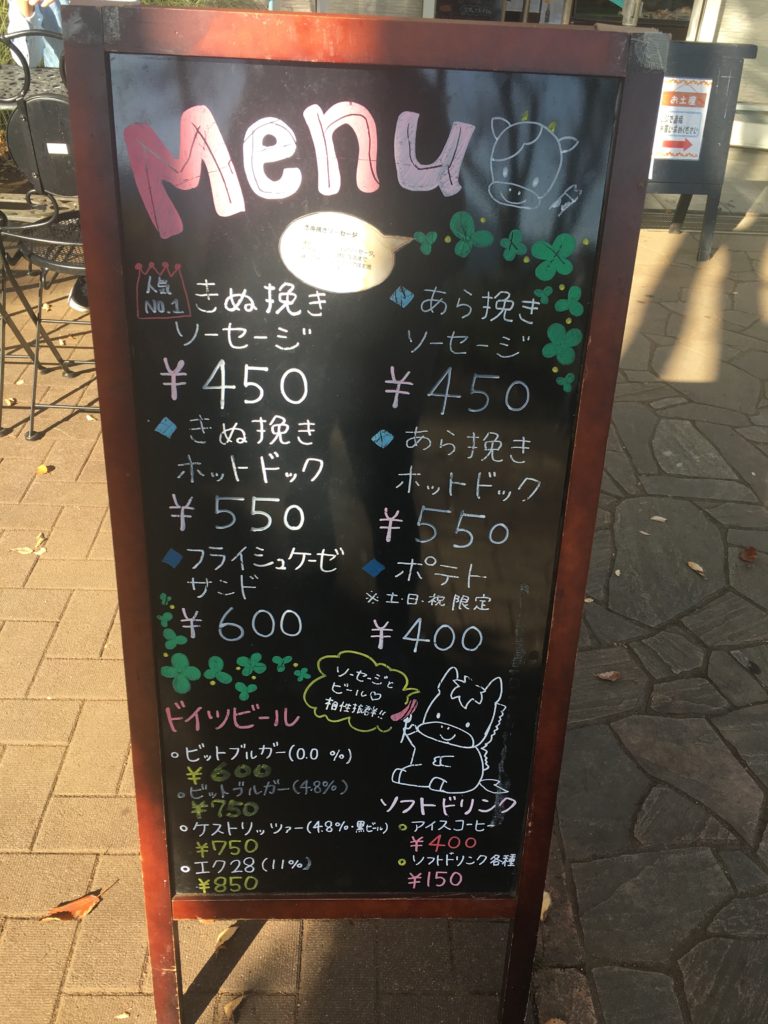 Menu
きぬ挽きソーセージ
人気
NO.1
きぬ挽き
ソーセージ
¥450
あら挽き
ソーセージ
¥450
きぬ挽き
ホットドック
¥550
あら挽き
ホットドック
¥550
フライシュケーゼ
サンド
¥600
ポテト
※土・日・祝 限定
¥400
ソーセージと
ビール♡
相性抜群!!
ドイツビール
ビットブルガー(0.0 %)
¥600
ビットブルガー(4.8%)
¥750
ケストリッツァー(4.8%・黒ビール)
¥750
エク28(11%)
¥850
ソフトドリンク
アイスコーヒー
¥400
ソフトドリンク各種
¥150
お土産